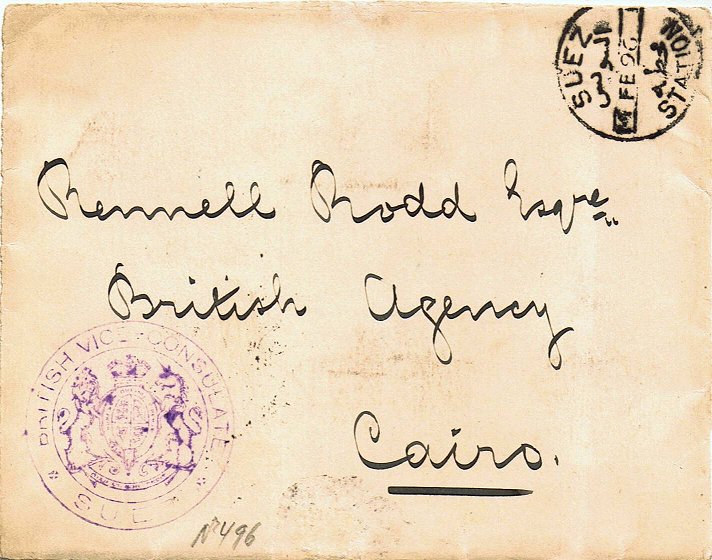 SUEZ
السويس
FE 96
محطة
STATION
Rennell Rodd Esqre
British Agency
Cairo.
BRITISH VICE-CONSULATE
SUEZ
Nº 496